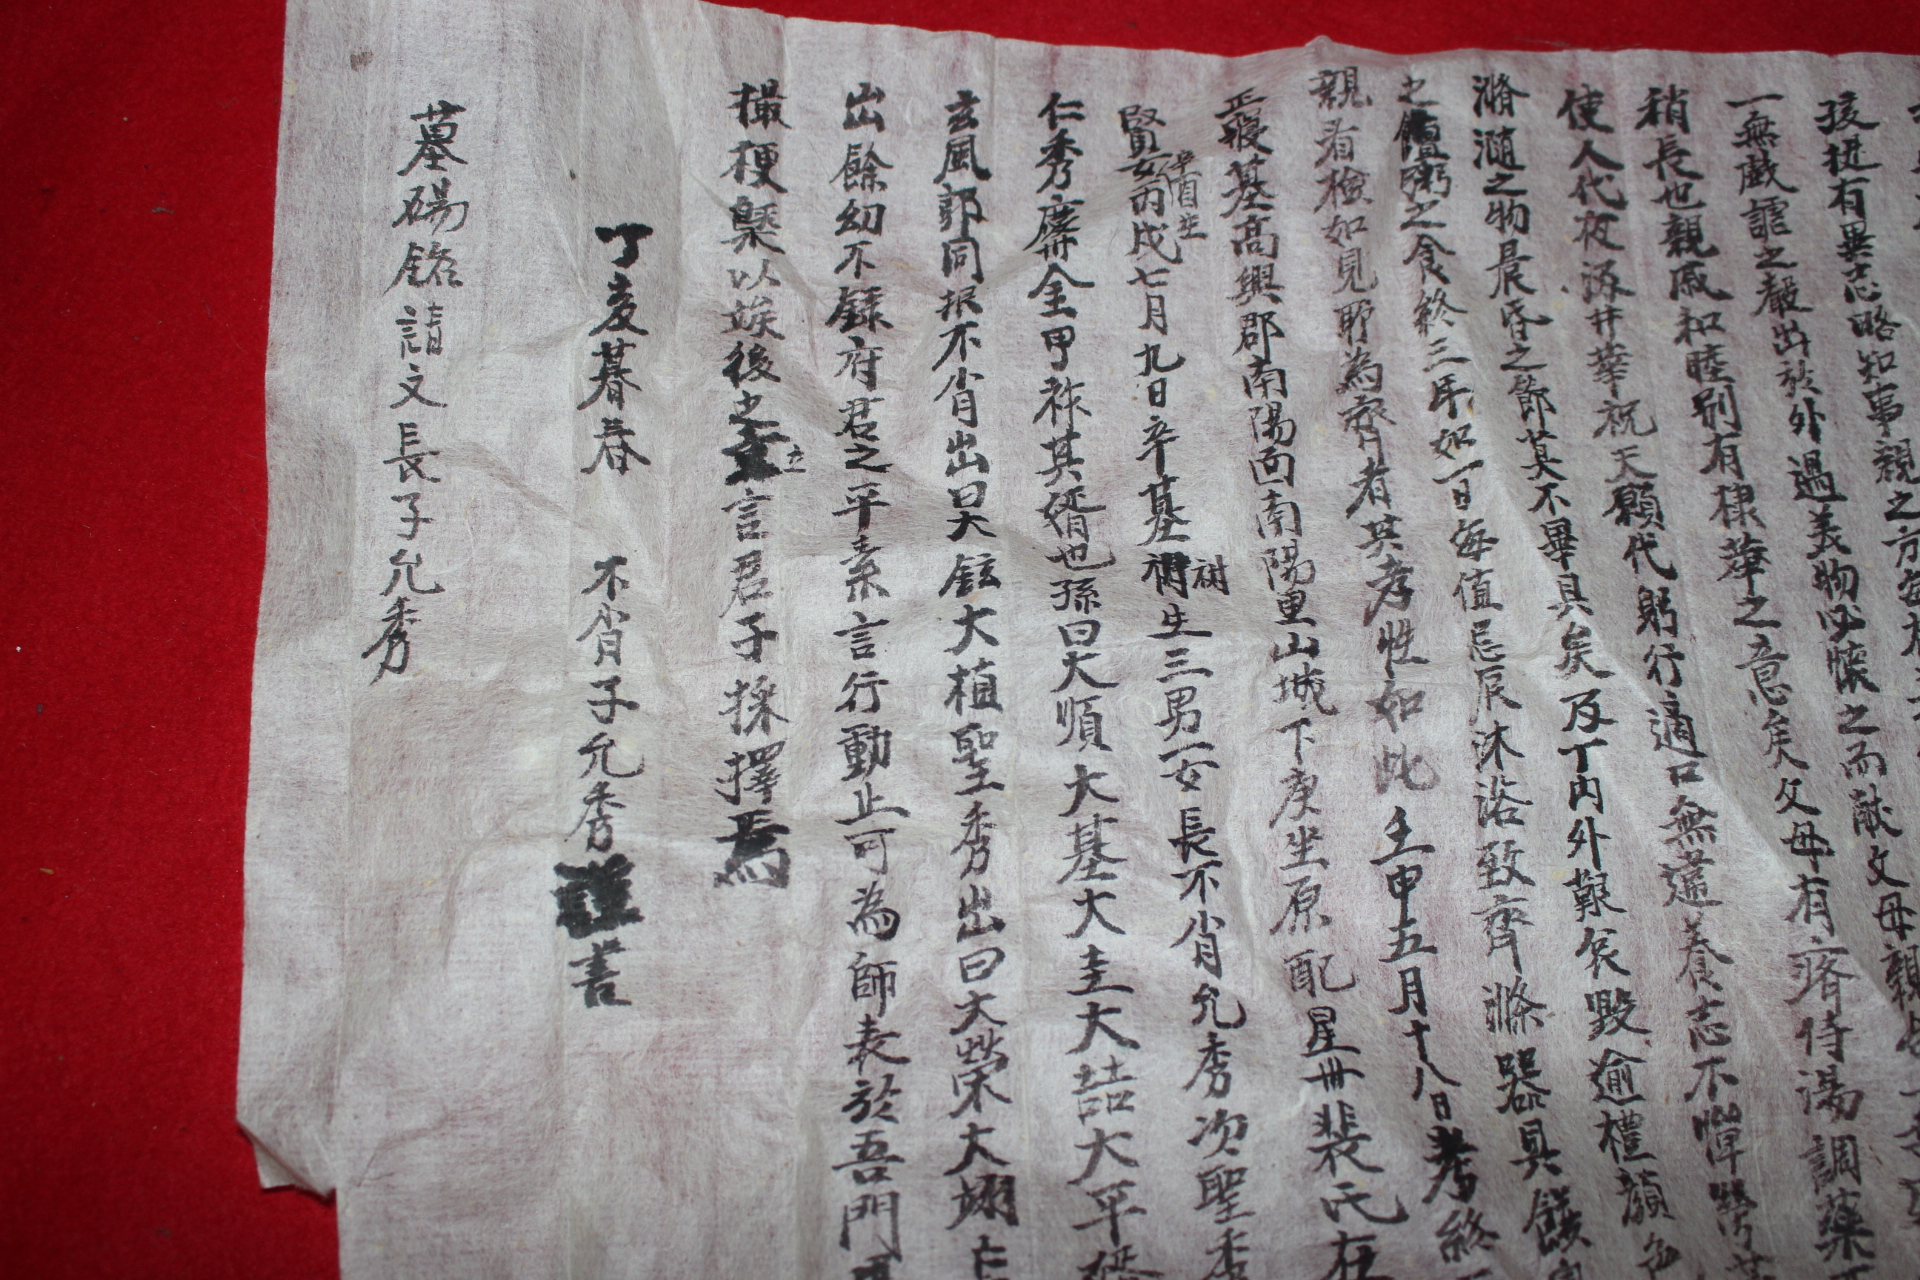 孩提有異志略知事親之方每
一無戱謔之聲出於外遇美物必懷之而献父母親
稍長也親戚和睦别有棣華之意矣父母有癠侍湯調藥
使人代夜汲井華祝天願代躬行適口無違養志不憚勞
滫瀡之物晨昏之節莫不畢具矣及丁内外艱哀毁逾禮顔
之饘粥之食終三年如一日每值忌辰沐浴致齊滌器具饌
親有檢如見所為齊者其孝性如此壬申五月十八日考終
正寢墓高興郡南陽面南陽里山城下庚坐原配星州裴氏
賢女辛酉生丙戌七月九日卒墓祔祔生三男一女長不肖允秀次聖秀
仁秀慶州金甲祚其婿也孫曰大順大基大圭大喆大平婿
玄風郭同振不肖出曰大鉉大植聖秀出曰大榮大翊
出餘幼不錄府君之平素言行動止可為師表於吾門
撮梗槩以竢後之立言君子採擇焉
丁亥暮春 不肖子允秀謹書
墓碣銘請文長子允秀